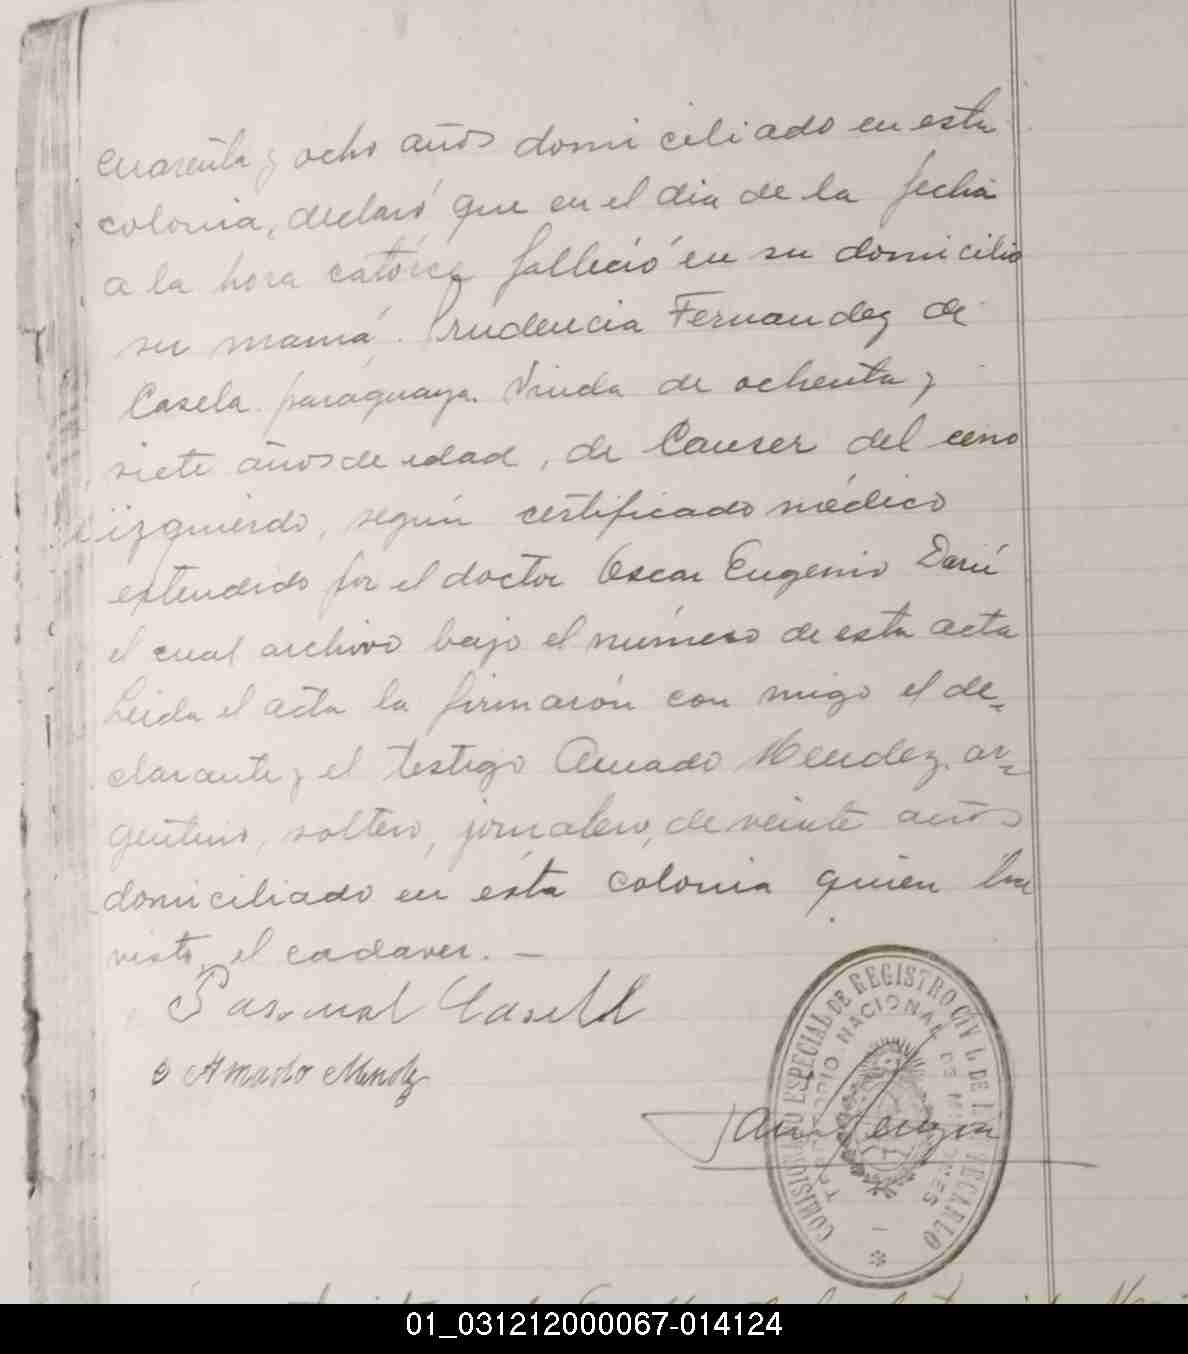 cuarenta y ocho años domiciliado en esta
colonia, declaró que en el dia de la fecha
a la hora catórce falleció en su domicilio
su mamá. Prudencia Fernandez de
Casela. paraguaya. Viuda de ochenta y
siete años de edad, de Cancer del ceno
izquierdo, según certificado médico
extendido por el doctor Oscar Eugenio Darú
el cual archivo bajo el número de esta acta
Leida el acta la firmarón con migo el de-
clarante y el testigo Amado Mendez, ar-
gentino, soltero, jornalero, de veinte años
domiciliado en ésta colonia quien ha
visto, el cadaver. —
Pascual Casell
Amado Mendez
COMISIONADO ESPECIAL DE REGISTRO CIVIL DE
TERRITORIO NACIONAL DE MISIONES
01_031212000067-014124